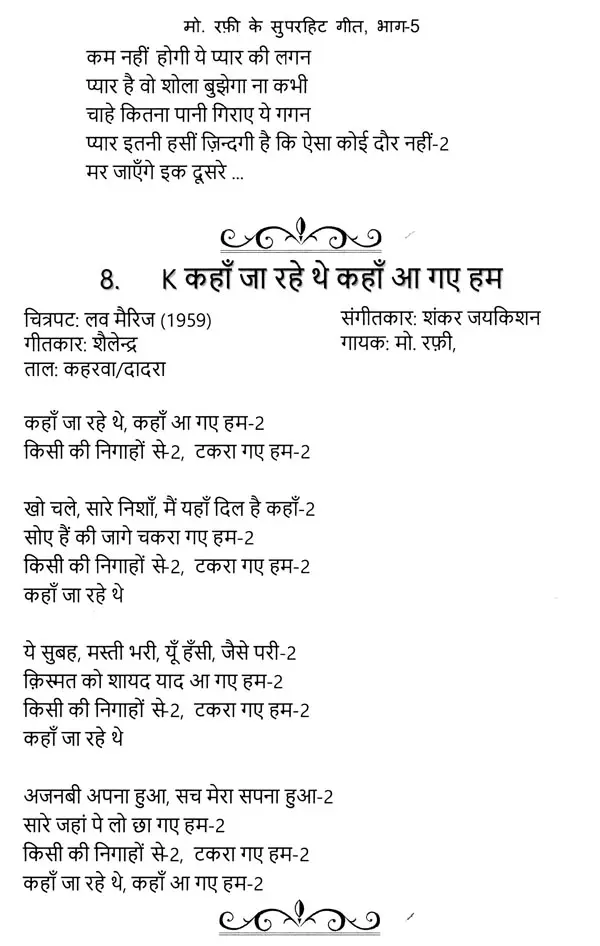 मो. रफ़ी के सुपरहिट गीत, भाग-5
कम नहीं होगी ये प्यार की लगन
प्यार है वो शोला बुझेगा ना कभी
चाहे कितना पानी गिराए ये गगन
प्यार इतनी हसीं ज़िन्दगी है कि ऐसा कोई दौर नहीं-2
मर जाएँगे इक दूसरे ...
8. K कहाँ जा रहे थे कहाँ आ गए हम
चित्रपट: लव मैरिज (1959) संगीतकार: शंकर जयकिशन
गीतकार: शैलेन्द्र गायक: मो. रफ़ी,
ताल: कहरवा/दादरा
कहाँ जा रहे थे, कहाँ आ गए हम-2
किसी की निगाहों से-2, टकरा गए हम-2
खो चले, सारे निशाँ, मैं यहाँ दिल है कहाँ-2
सोए हैं की जागे चकरा गए हम-2
किसी की निगाहों से-2, टकरा गए हम-2
कहाँ जा रहे थे
ये सुबह, मस्ती भरी, यूँ हँसी, जैसे परी-2
क़िस्मत को शायद याद आ गए हम-2
किसी की निगाहों से-2, टकरा गए हम-2
कहाँ जा रहे थे
अजनबी अपना हुआ, सच मेरा सपना हुआ-2
सारे जहां पे लो छा गए हम-2
किसी की निगाहों से-2, टकरा गए हम-2
कहाँ जा रहे थे, कहाँ आ गए हम-2